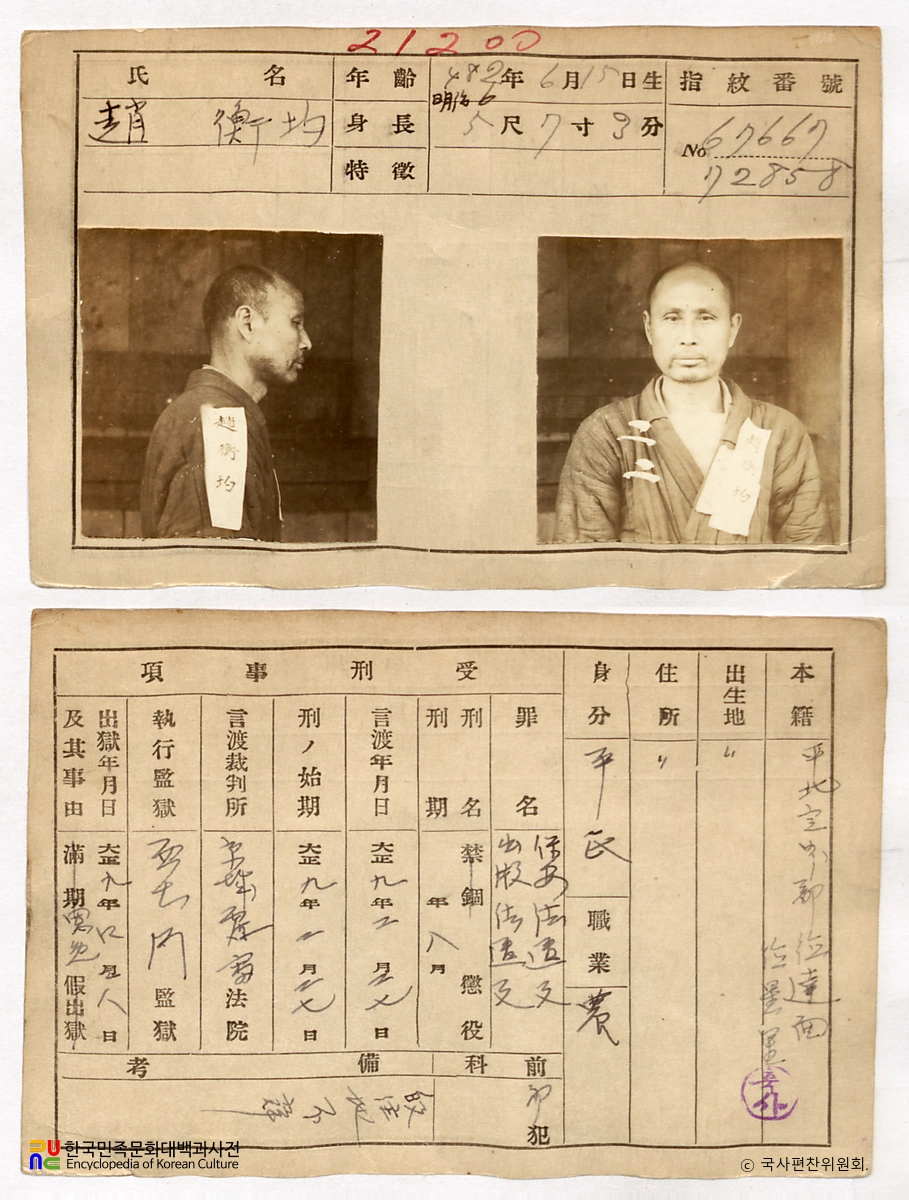 21200
氏 名
趙 衡均
年齡
482年6月15日生
明治6
身長
5尺7寸3分
特徵
指紋番號
No 67667
72858
趙衡均
趙衡均
本籍
平北定州郡 德達面
出生地
〃
住所
〃
身分
平民
職業
農
受刑事項
罪名
保安法違反
出版法違反
刑名
禁錮 懲役
刑期
年八月
言渡年月日
大正九年二月二七日
刑ノ始期
大正九年二月二七日
言渡裁判所
京城覆審法院
執行監獄
西大門監獄
出獄年月日及其事由
大正九年 月 八日
滿期 假出獄
前科
初犯
備考
한국민족문화대백과사전
Encyclopedia of Korean Culture
© 국사편찬위원회.